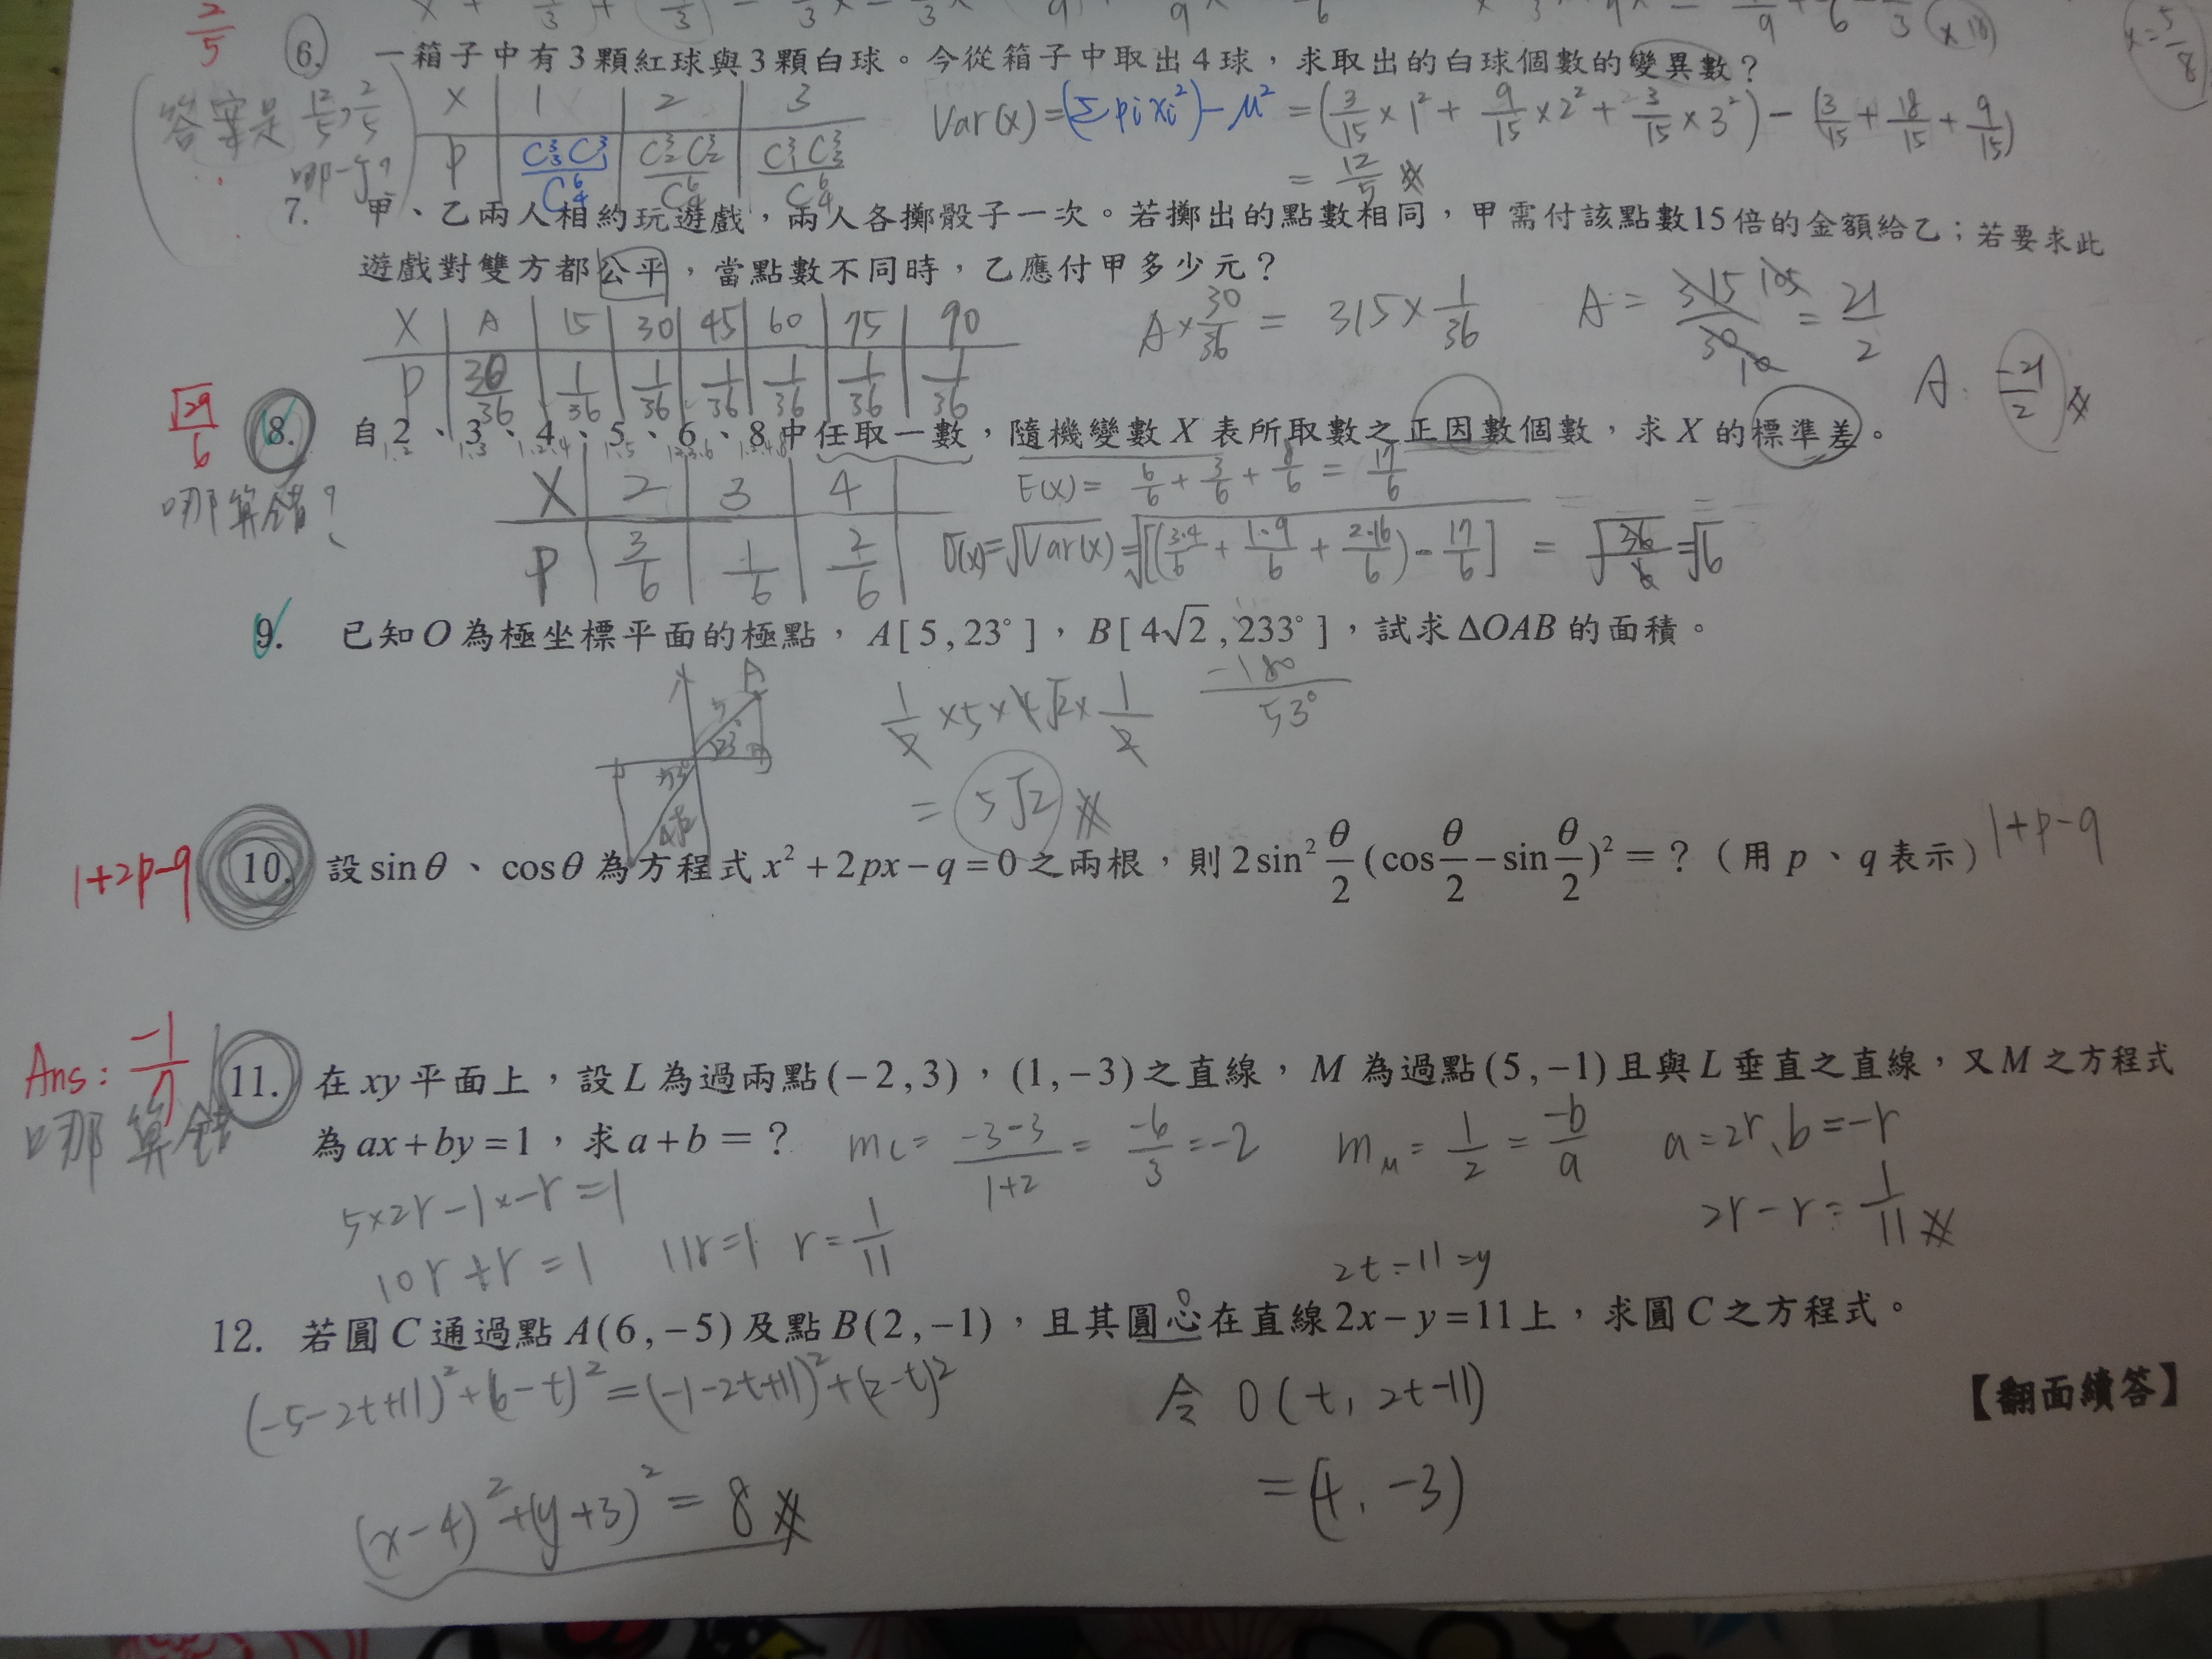 2/5
6. 一箱子中有3顆紅球與3顆白球。今從箱子中取出4球，求取出的白球個數的變異數？
x=5/8
答案是 12/5, 2/5
哪一個?
X 1 2 3
P C³₃C³₁/C⁶₄ C³₂C³₂/C⁶₄ C³₁C³₃/C⁶₄
Var(x)=(Σpixi²)-μ² = (3/15×1²+9/15×2²+3/15×3²)-(3/15+18/15+9/15)
= 12/5
7. 甲、乙兩人相約玩遊戲，兩人各擲骰子一次。若擲出的點數相同，甲需付該點數15倍的金額給乙；若要求此
遊戲對雙方都公平，當點數不同時，乙應付甲多少元？
X A 15 30 45 60 75 90
P 30/36 1/36 1/36 1/36 1/36 1/36 1/36
A×30/36 = 315×1/36
A = 315/30 = 21/2
105
10
A: -21/2
√29/6
8. 自2、3、4、5、6、8中任取一數，隨機變數X表所取數之正因數個數，求X的標準差。
1.2 1.3 1.2.4 1.5 1.2.3.6 1.2.4.8
哪算錯?
X 2 3 4
P 3/6 1/6 2/6
E(x)= 6/6+3/6+8/6 = 17/6
σ(x)=√Var(x)=√[(3·4/6+1·9/6+2·16/6)-17/6] = √36/6=√6
9. 已知O為極坐標平面的極點，A[5,23°]，B[4√2,233°]，試求ΔOAB的面積。
-180
53°
A
5
23°
53°
4√2
1/2×5×4√2×1/2
= 5√2
1+2p-q
10. 設sinθ、cosθ為方程式x²+2px-q=0之兩根，則2sin²θ/2(cosθ/2-sinθ/2)²=？（用p、q表示）
1+p-q
Ans: -1/7
哪算錯
11. 在xy平面上，設L為過兩點(-2,3)，(1,-3)之直線，M為過點(5,-1)且與L垂直之直線，又M之方程式
為ax+by=1，求a+b=？
mL= -3-3/1+2 = -6/3 =-2
mM = 1/2 = -b/a
a=2r、b=-r
5×2r-1×-r=1
10r+r=1
11r=1 r=1/11
2r-r=1/11
2t-11=y
12. 若圓C通過點A(6,-5)及點B(2,-1)，且其圓心在直線2x-y=11上，求圓C之方程式。
(-5-2t+11)²+(6-t)²=(-1-2t+11)²+(2-t)²
令 O(t, 2t-11)
=(4, -3)
【翻面續答】
(x-4)²+(y+3)²=8